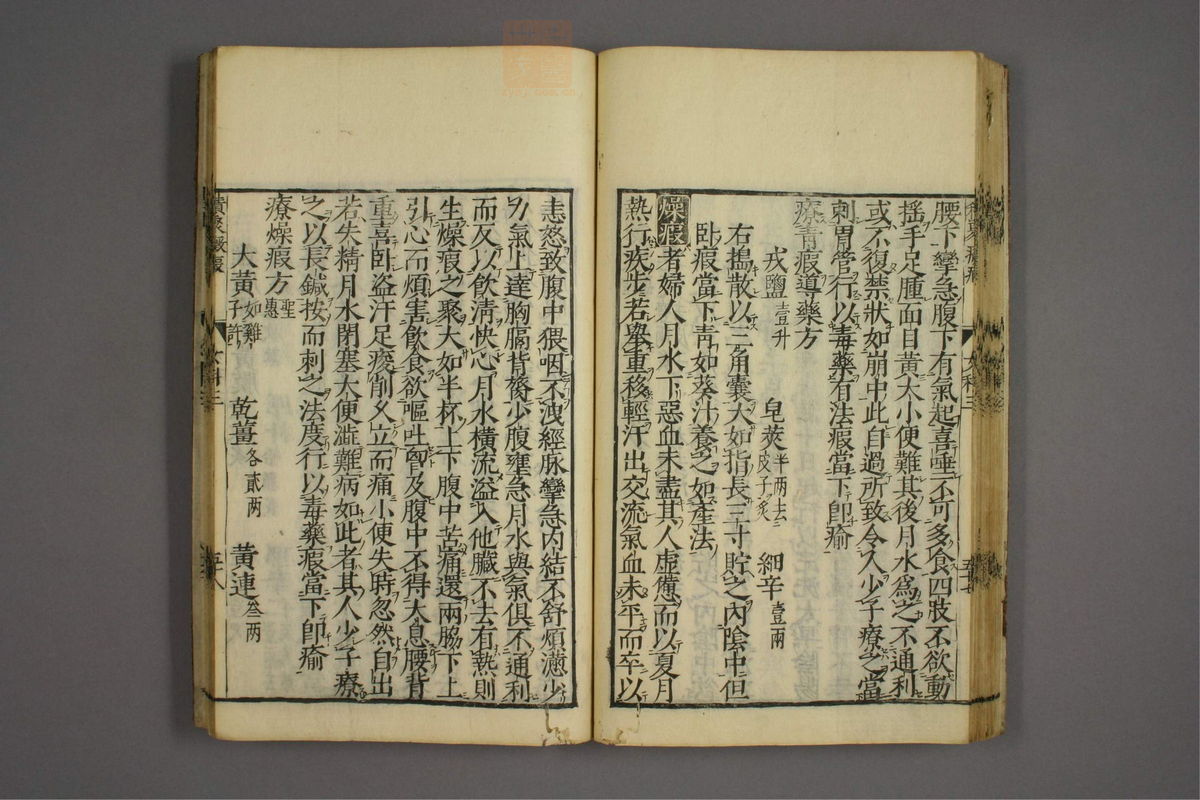 腰下攣急腹下有氣起喜唾不可多食四肢不欲動
搖手足腫面目黃大小便難其後月水爲之不通利
或不復禁狀如崩中此自過所致令人少子療之當
刺胃管行以毒藥有法瘕當下卽瘉
療青瘕導藥方
戎鹽壹升 皂莢半兩去皮子炙 細辛壹兩
右搗散以三角囊大如指長三寸貯之內陰中但
臥瘕當下青如葵汁養之如產法
燥瘕者婦人月水下惡血未盡其人虛憊而以夏月
熱行疾步若舉重移輕汗出交流氣血未平而卒以
恚怒致腹中猥咽不洩經脉攣急內結不舒煩懣少
力氣上達胸膈背膂少腹壅急月水與氣俱不通利
而反以飲清快心月水橫流溢入他臟不去有熱則
生燥瘕之聚大如半杯上下腹中苦痛還兩脇下上
引心而煩害飲食欲嘔吐胷及腹中不得太息腰背
重喜臥盜汗足痠削久立而痛小便失時忽然自出
若失精月水閉塞大便澁難病如此者其人少子療
之以長鍼按而刺之法度行以毒藥瘕當下卽瘉
療燥瘕方聖惠
大黃如雞子許 乾薑各貳两 黃連叁两
女科三